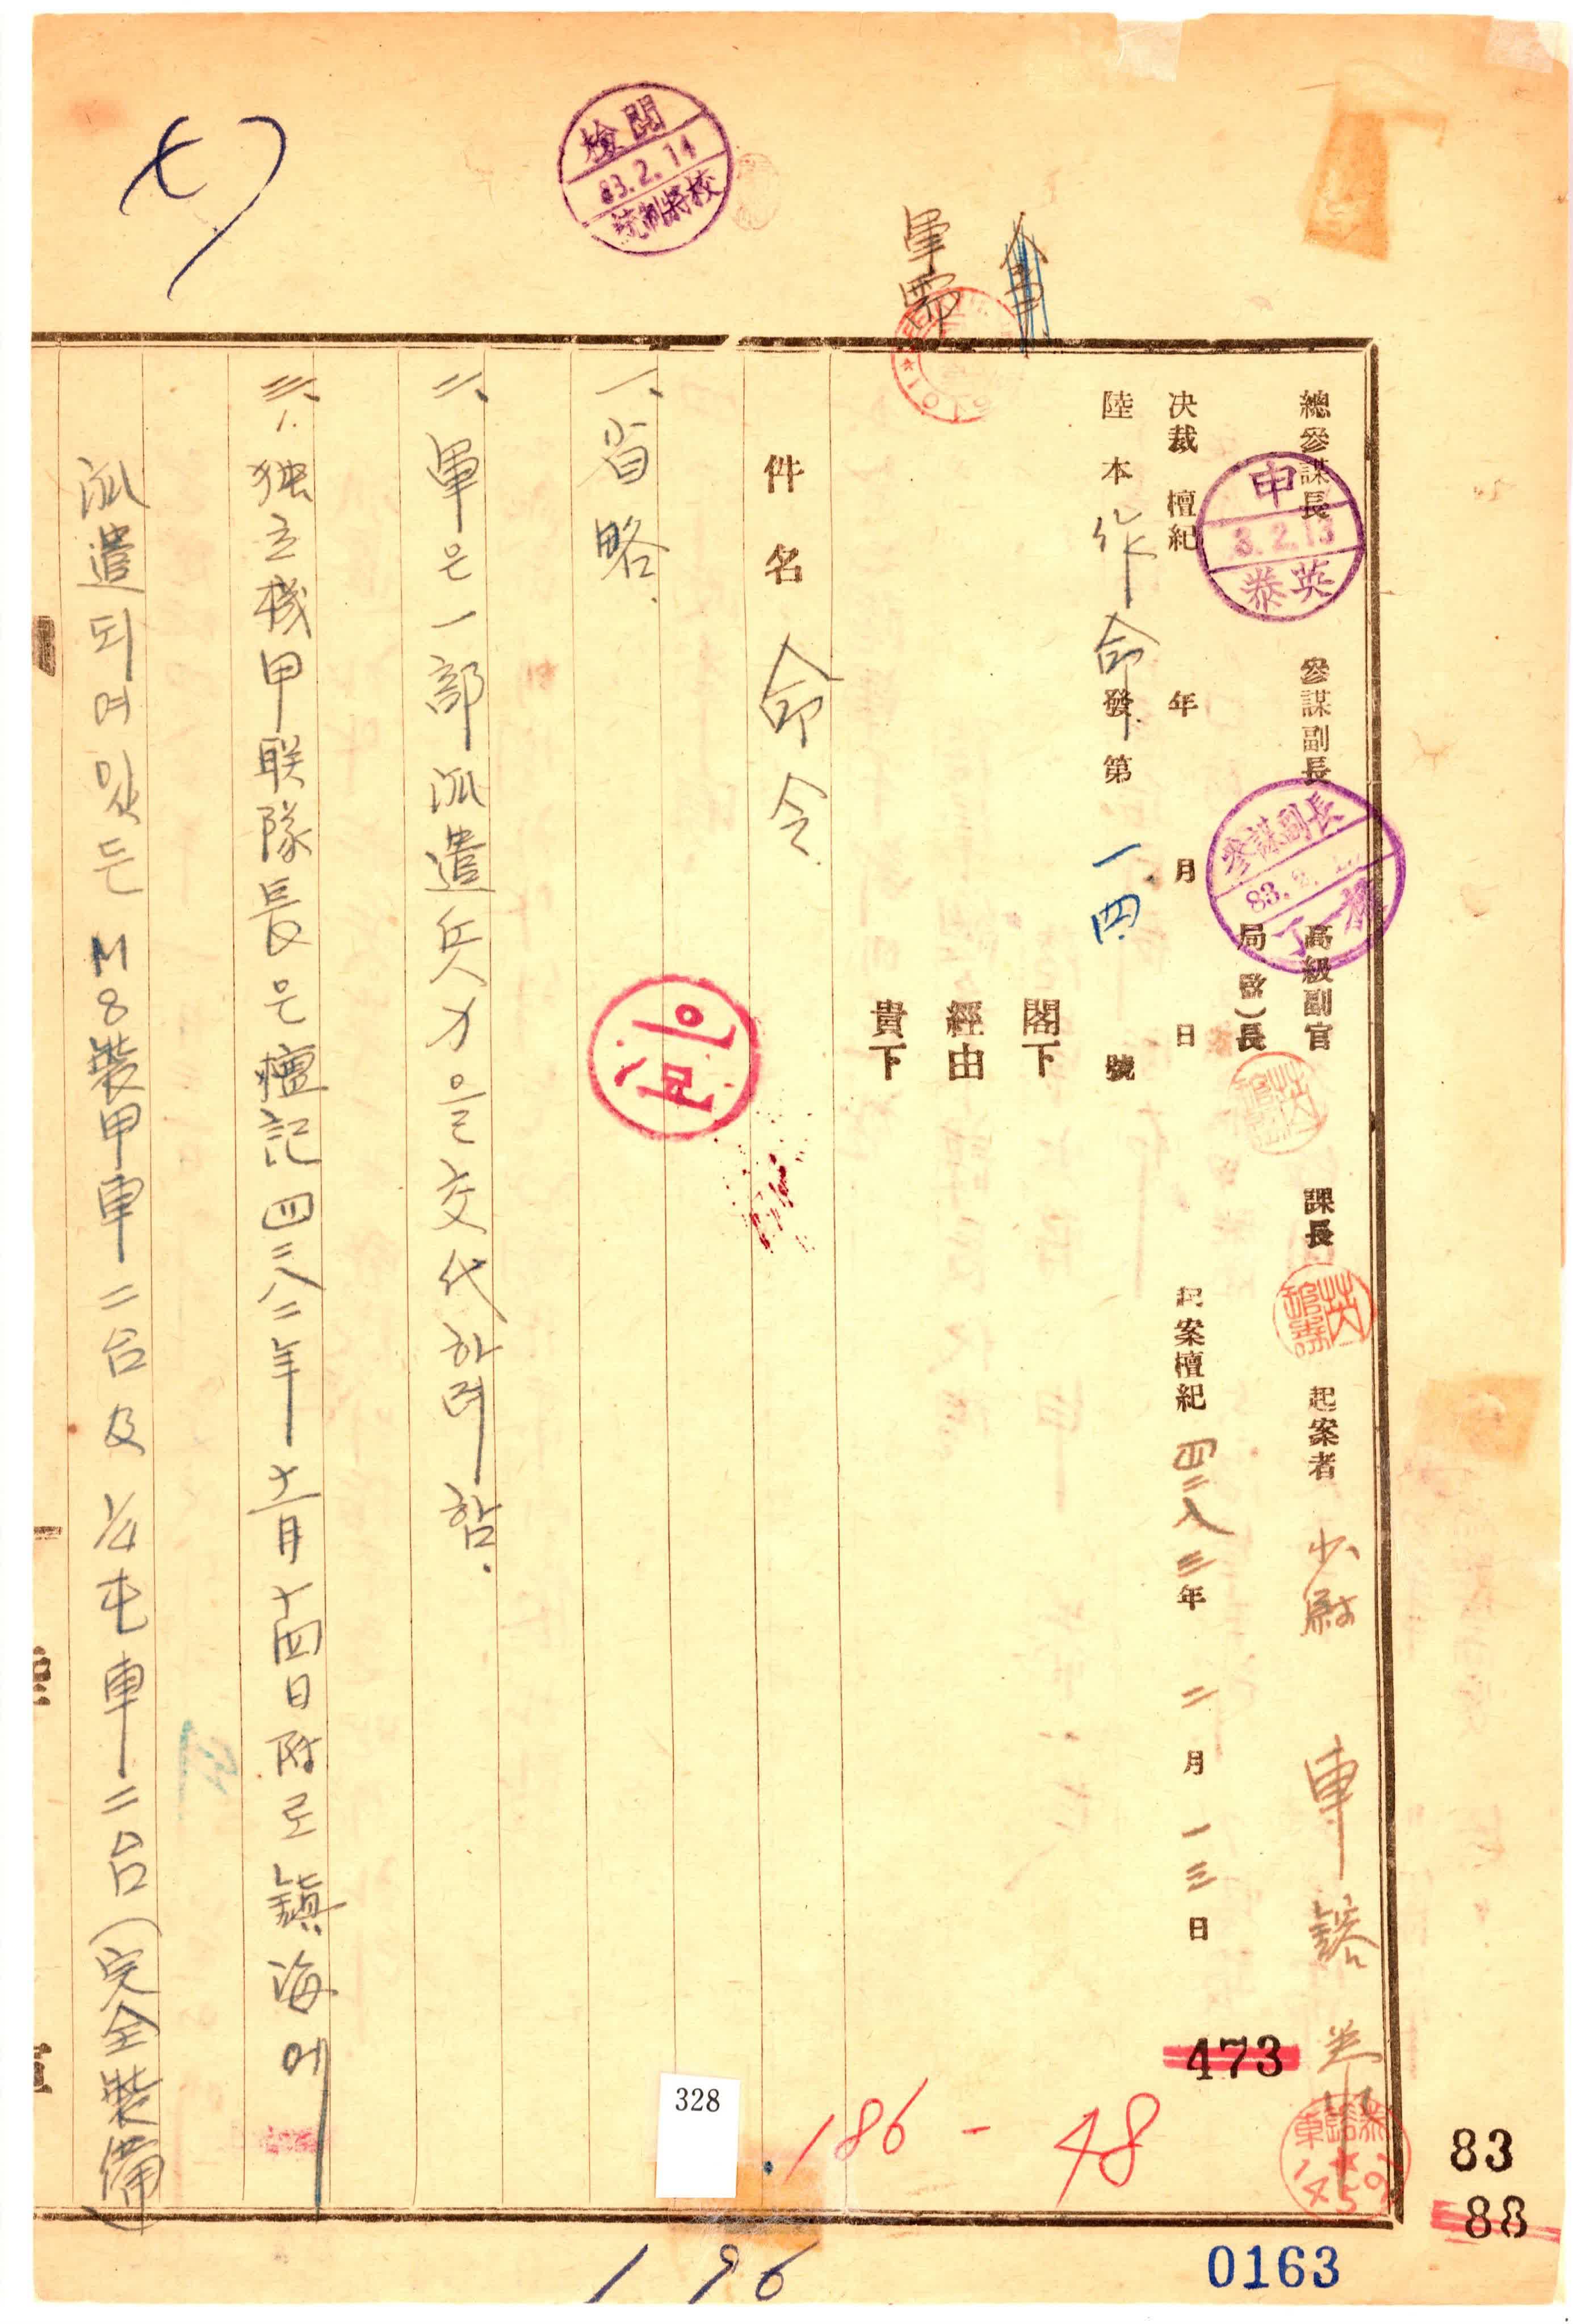 檢閱
83.2.14
統制將校
軍需
總參謀長
申
3.2.13
泰英
參謀副長
參謀副長
83.
高級副官
局(監)長
課長
起案者 少尉 車
決裁 檀紀 年 月 日
起案檀紀 四二八三年 二月 一三日
陸本作命發第 一四 號
閣下
經由
貴下
件名 命令
一、省略.
二、軍은 一部 派遣兵力을 交代하려 함.
三、1. 独立機甲联隊長은 檀記四二八二年 十二月 十四日附로 鎭海에
派遣되여 있든 M8裝甲車 二台 及 ¼屯車 二台 (完全裝備)
473
186 - 48
328
196
83
88
0163